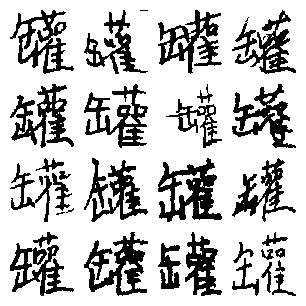 罐罐罐罐
罐罐罐罐
罐罐罐罐
罐罐罐罐